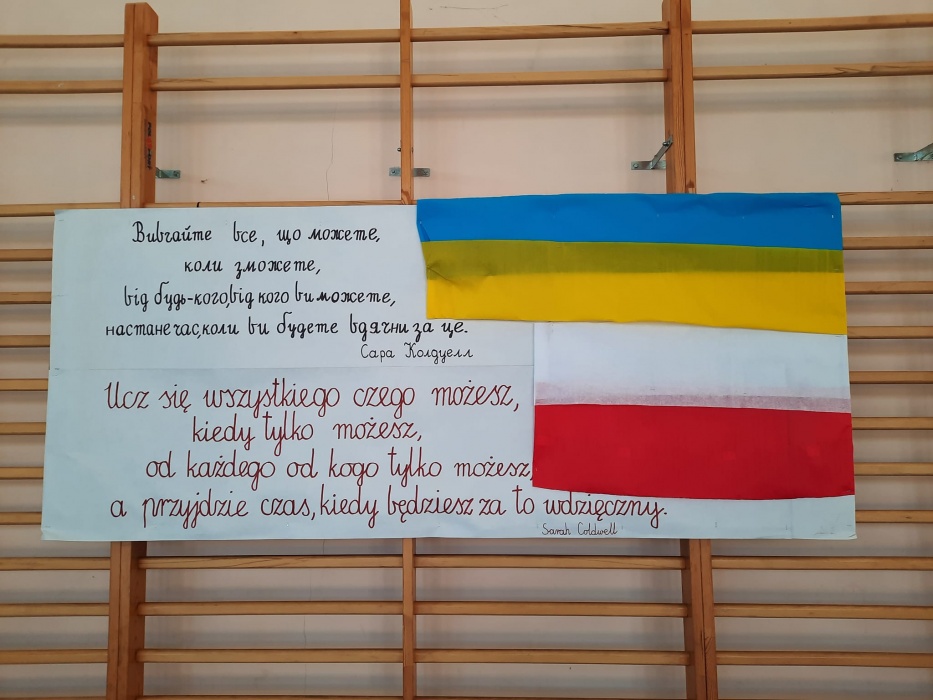 Вивчайте все, що можете,
коли зможете,
від будь-кого, від кого ви можете,
настане час, коли ви будете вдячни за це.
Сара Колдуелл
Ucz się wszystkiego czego możesz,
kiedy tylko możesz,
od każdego od kogo tylko możesz,
a przyjdzie czas, kiedy będziesz za to wdzięczny.
Sarah Coldwell